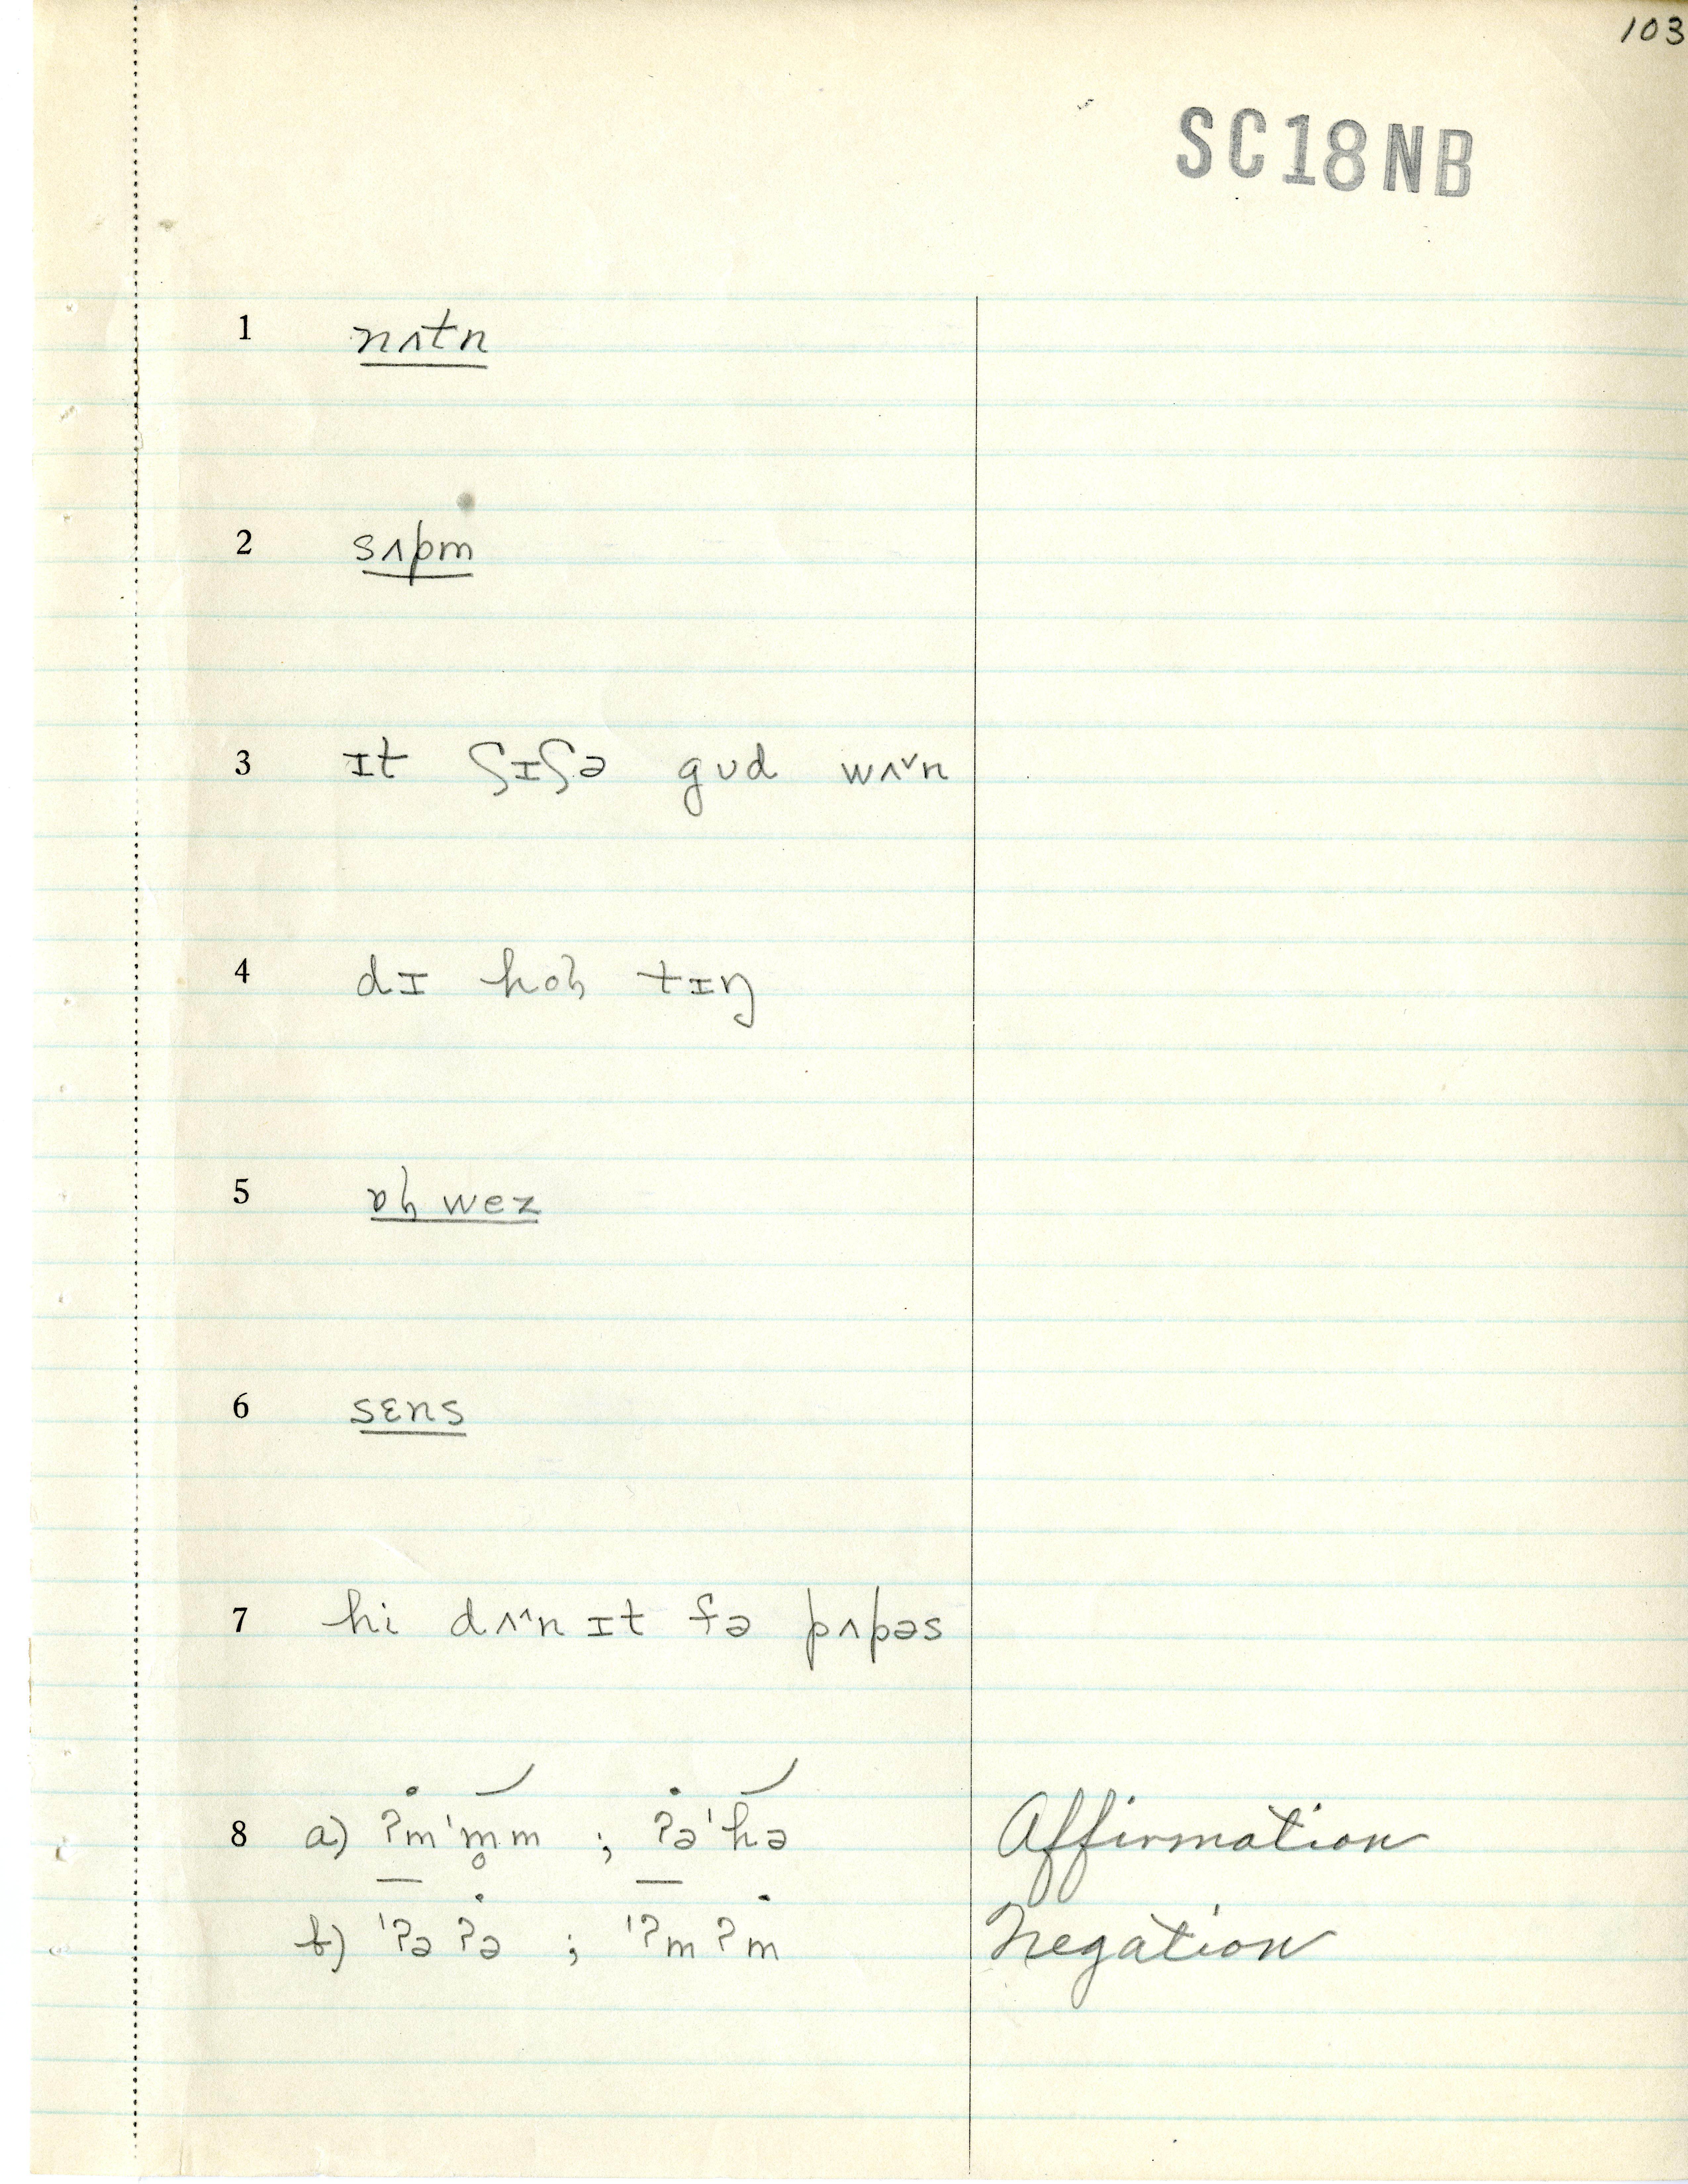 103
SC18NB
1 nʌtn
2 sʌpm
3 ɪt ʃɪʃə gʊd wʌ˅n
4 dɪ hoɦ tɪŋ
6 sɛns
7 hi dʌ˄n ɪt fə pʌpəs
8 a) ʔm'm̥m ; ʔə'hə Affirmation
b) 'ʔəʔə ; 'ʔmʔm Negation